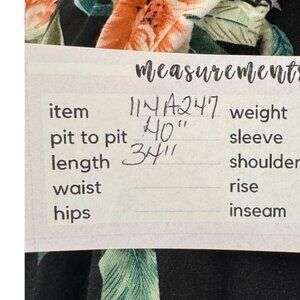 measurements
item 114A247 weight
pit to pit 40" sleeve
length 34" shoulder
waist rise
hips inseam